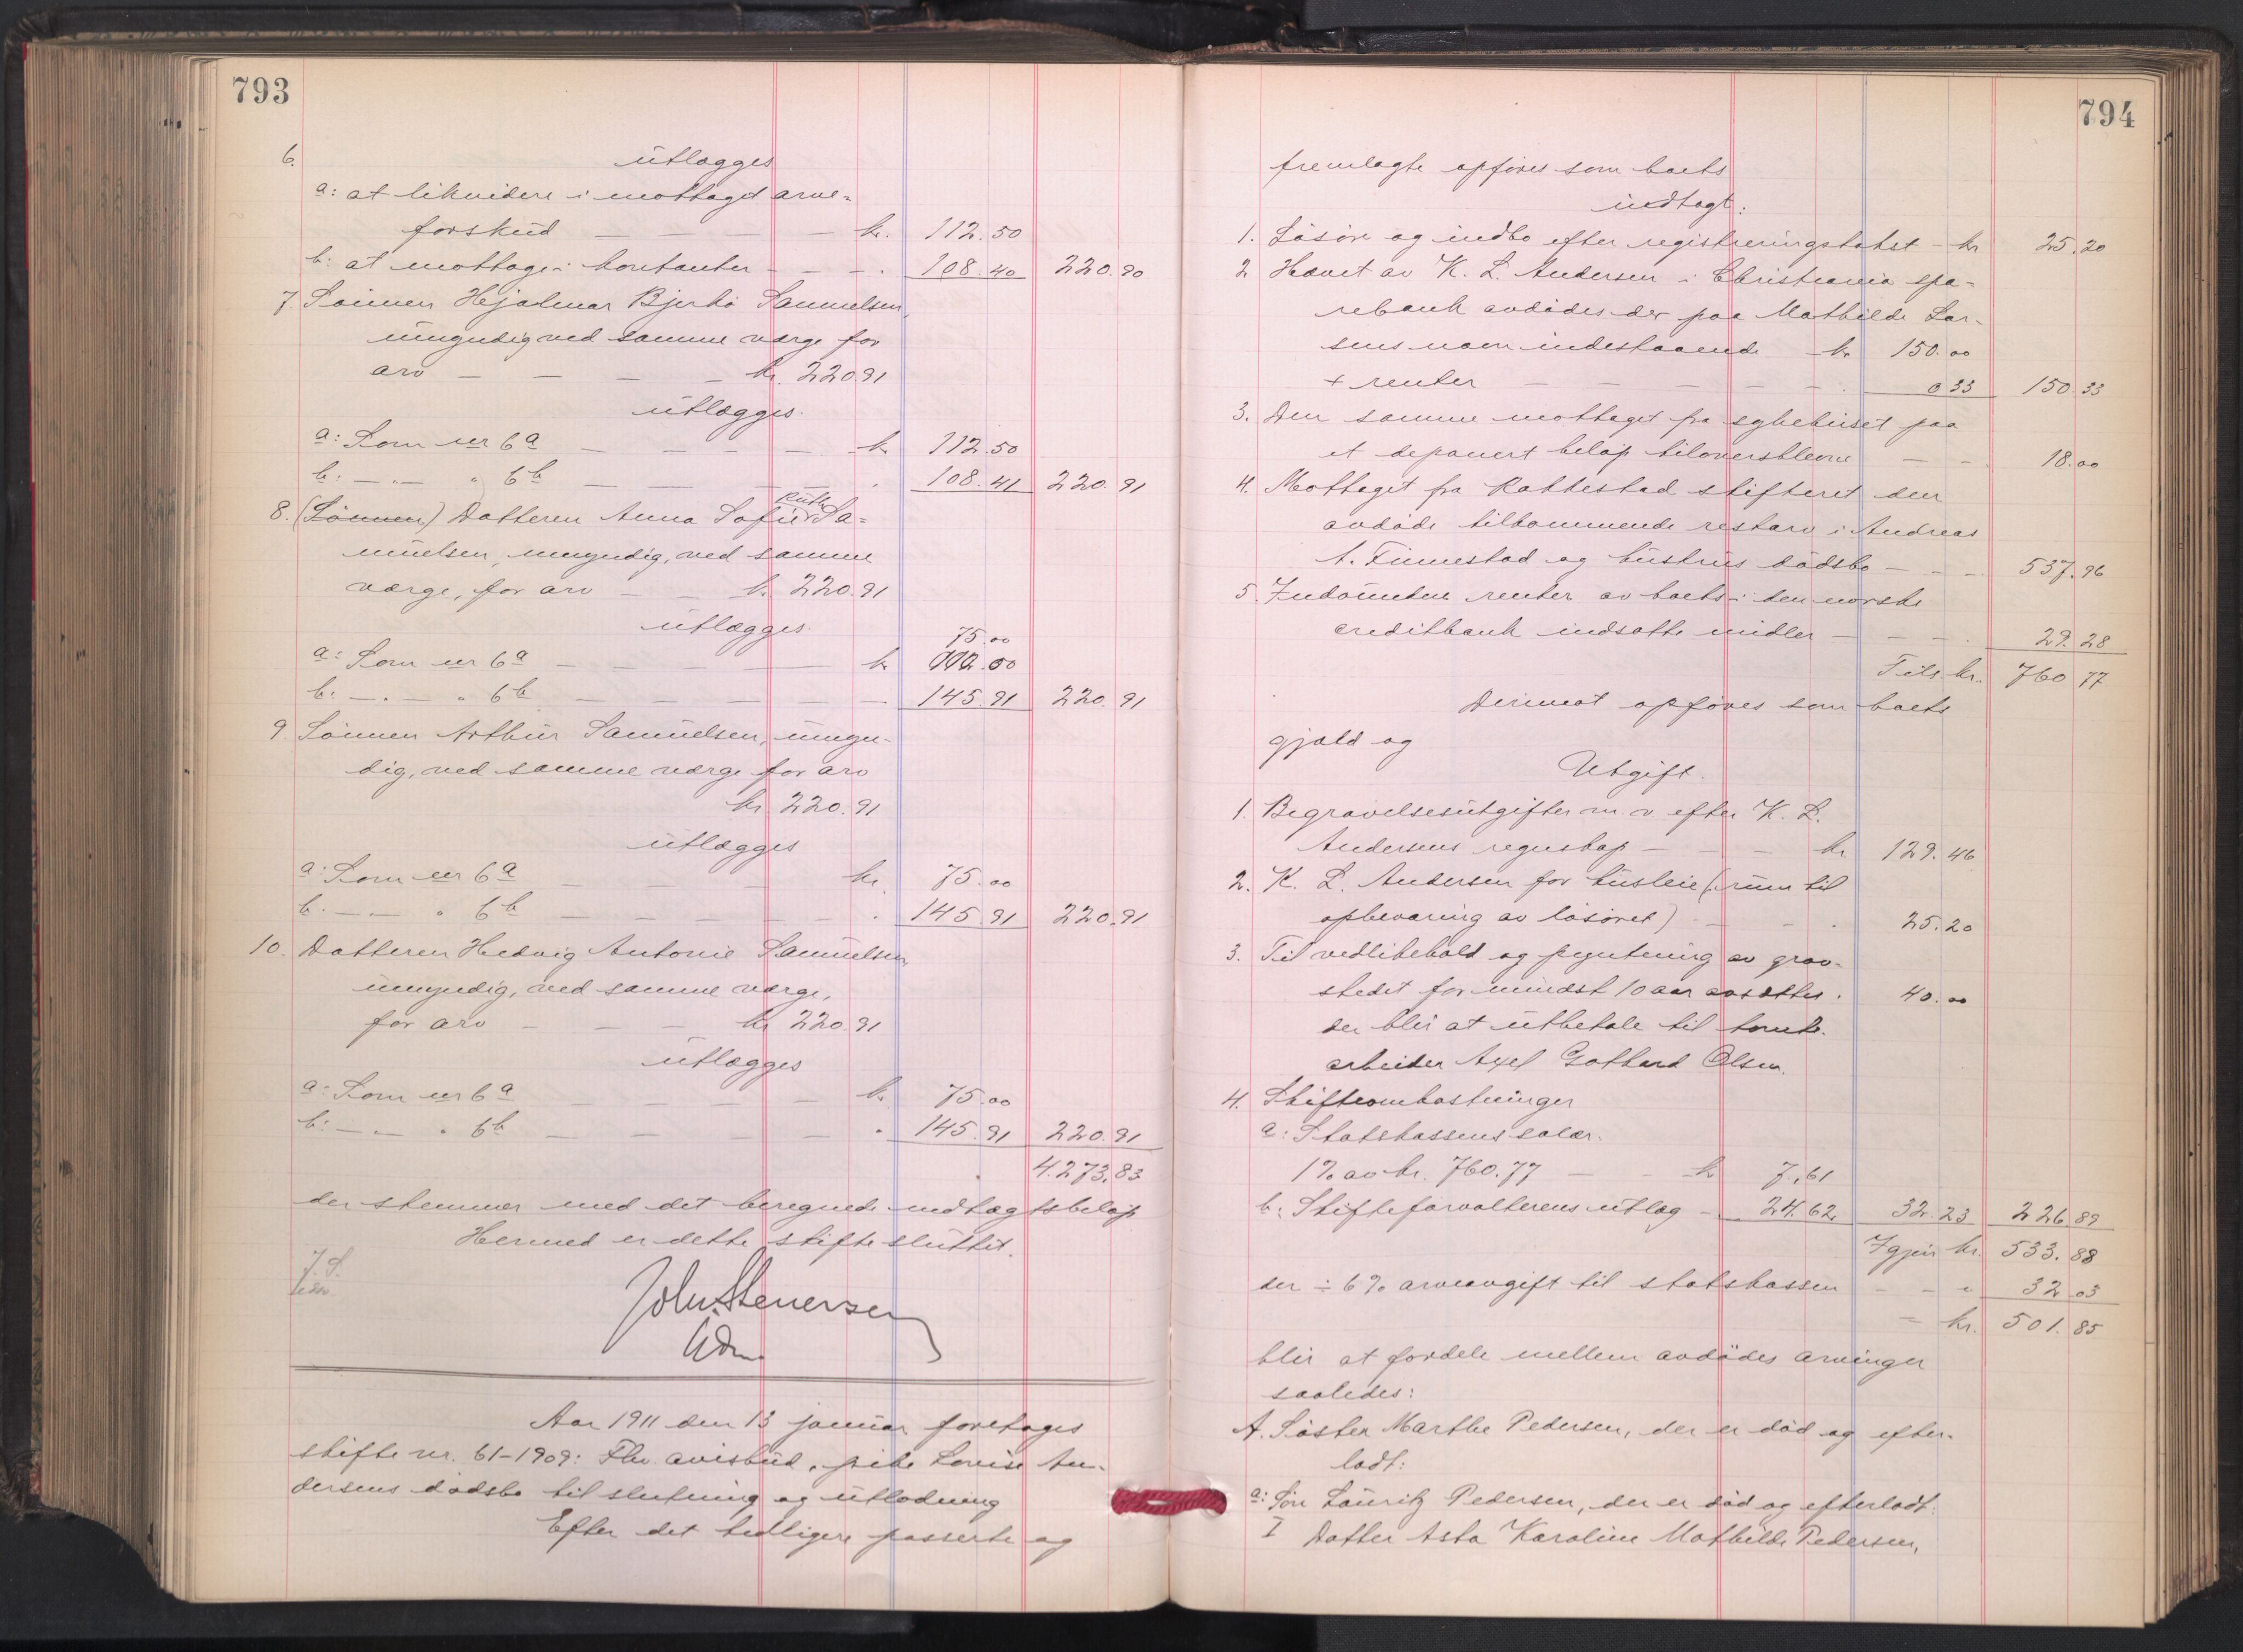 793
6. utlægges
a: at likvidere i mottaget arve-
forskud — — — — kr. 112.50
b: at mottage i kontanter — — — . 108.40 220.90
7. Sönnen Hjalmar Bjerkö Samuelsen,
umyndig ved samme værge for
arv — — — — kr. 220.91
utlægges.
a: Som nr 6a — — — — — kr 112.50
b: — . — " 6b — — — — . 108.41 220.91
8. (Sönnen) Datteren Anna Sofie Ruth Sa=
muelsen, umyndig, ved samme
værge, for arv — — kr. 220.91
utlægges.
75.00
a: Som nr 6a — — — — — kr 112.50
b: — . — " 6b — — — — — 145.91 220.91
9. Sönnen Arthur Samuelsen, umyn-
dig, ved samme værge for arv
kr. 220.91
utlægges
a: Som nr 6a — — — — kr. 75.00
b. — . — " 6b — — — — — . 145.91 220.91
10. Datteren Hedvig Antonie Samuelsen
umyndig, ved samme værge,
for arv — — — kr 220.91
utlægges
a: Som nr 6a — — — — kr. 75.00
b: — . — " 6b — — — — " 145.91 220.91
4.273.83
der stemmer med det beregnede indtægtsbeløp
Hermed er dette skifte sluttet.
Joh. Stenersen
Aar 1911 den 13 januar foretages
skifte nr. 61-1909: Fhv. avisbud, pike Louise An-
dersens dödsbo til slutning og utlodning
Efter det tidligere passerte og
794
fremlagte opföres som boets
indtægt:
1. Lösöre og indbo efter registreringstakst — kr 25.20
2. Hævet av K. L. Andersen i Christiania spa-
rebank avdödes der paa Mathilde Lar-
sens navn indestaaende — kr 150.00
+ renter — — — — — . 0.33 150.33
3. Den samme mottaget fra sykehuset paa
et deponert beløp tiloversblevne — — 18.00
4. Mottaget fra Rakkestad skifteret den
avdöde tilkommende restarv i Andreas
A. Finnestad og hustrus dödsbo — — — 537.96
5. Indvundne renter av boets i den norske
creditbank indsatte midler — — — . 29.28
Tils. kr. 760.77
Derimot opföres som boets
gjæld og
Utgift.
1. Begravelsesutgifter m. v efter K. L.
Andersens regnskap — — — kr 129.46
2. K. L. Andersen for husleie (rum til
opbevaring av lösöret) — — . 25.20
3. Til vedlikehold og pyntning av grav-
stedet for mindst 10 aar avsættes. 40.00
der blir at utbetale til tomte-
arbeider Axel Gothard Olsen.
4. Skifteomkostninger
a: Statskassens salær.
1% av kr. 760.77 — — kr 7.61
b: Skifteforvalterens utlæg — 24.62 32.23 226.89
Igjen kr. 533.88
der ÷ 6% arveavgift til statskassen — — " 32.03
= kr. 501.85
blir at fordele mellem avdödes arvinger
saaledes:
A. Söster Marthe Pedersen, der er död og efter-
ladt:
a: Sön Lauritz Pedersen, der er död og efterladt:
I Datter Asta Karoline Mathilde Pedersen,